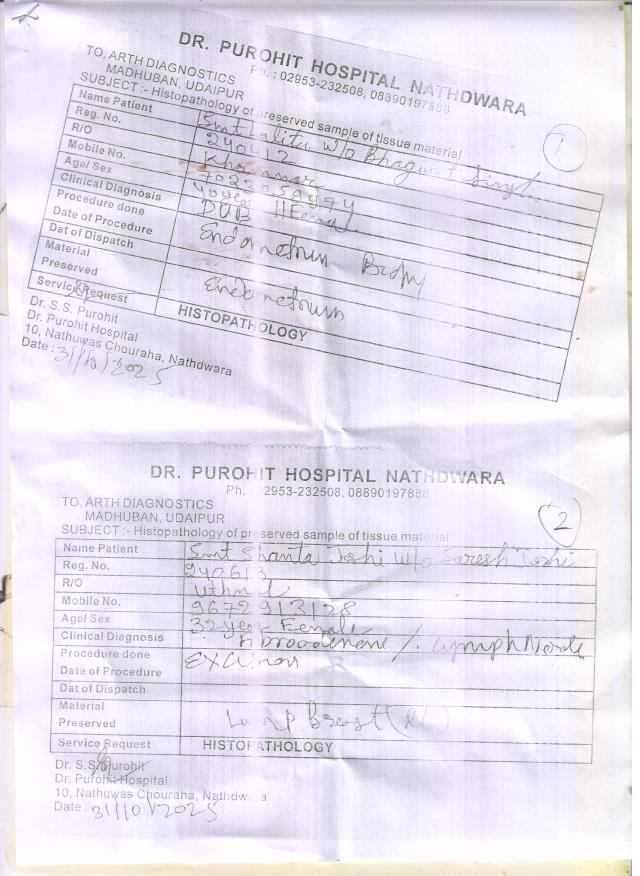 DR. PUROHIT HOSPITAL NATHDWARA
Ph. : 02953-232508, 08890197888
TO, ARTH DIAGNOSTICS
MADHUBAN, UDAIPUR
SUBJECT :- Histopathology of preserved sample of tissue material
1
Name Patient Smt Lalita w/o Bhagwat Singh
Reg. No. 240412
R/O Khamnor
Mobile No. 7023059474
Age/ Sex 40 year / Female
Clinical Diagnosis DUB
Procedure done Endometrium Biopsy
Date of Procedure
Dat of Dispatch
Material
Preserved Endometrium
Service Request HISTOPATHOLOGY
Dr. S.S. Purohit
Dr. Purohit Hospital
10, Nathuwas Chouraha, Nathdwara
Date : 31/10/2025
DR. PUROHIT HOSPITAL NATHDWARA
Ph. : 02953-232508, 08890197888
TO, ARTH DIAGNOSTICS
MADHUBAN, UDAIPUR
2
SUBJECT :- Histopathology of preserved sample of tissue material
Name Patient Smt Shanta Joshi w/o Suresh Joshi
Reg. No. 240613
R/O
Mobile No. 9672913128
Age/ Sex 32 year Female
Clinical Diagnosis Fibroadenoma /. Lymph Node
Procedure done Excision
Date of Procedure
Dat of Dispatch
Material
Preserved Lump Breast (Rt)
Service Request HISTOPATHOLOGY
Dr. S.S. Purohit
Dr. Purohit Hospital
10, Nathuwas Chouraha, Nathdwara
Date : 31/10/2025